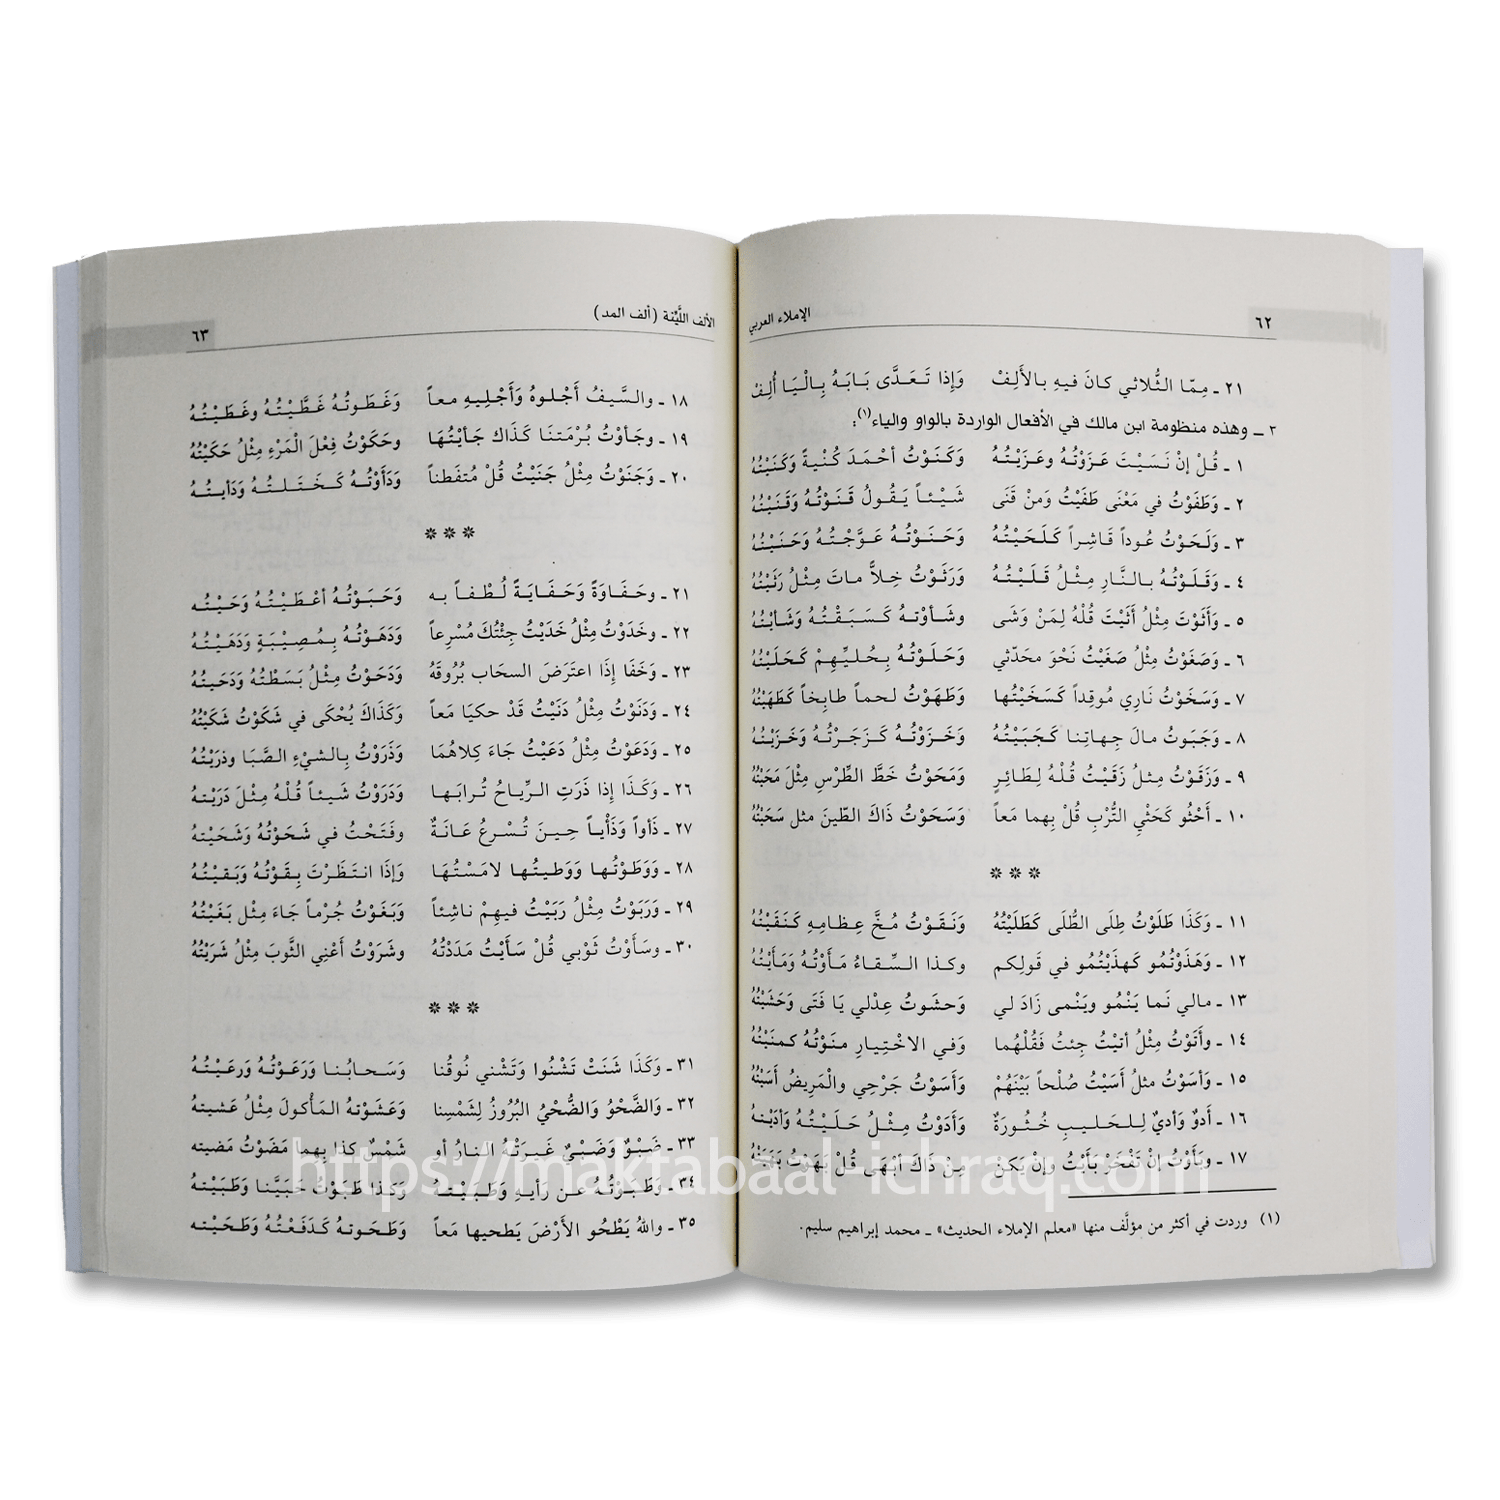 الإملاء العربي ٦٢
٢١ ـ مِمّا الثُّلاثي كانَ فيهِ بالأَلِفْ وَإذا تَعَدَّى بَابَهُ بِالْيَا أُلِفْ
٢ ـ وهذه منظومة ابن مالك في الأفعال الواردة بالواو والياء(١):
١ ـ قُلْ إنْ نَسَيْتَ عَزَوْتُهُ وعَزَيْتُهُ وَكَنَوْتُ أحْمَدَ كُنْيةً وَكَنَيْتُهُ
٢ ـ وَطَفَوْتُ في مَعْنَى طَفَيْتُ وَمنْ قَنَى شَيْئاً يَقُولُ قَنَوْتُهُ وَقَنَيْتُهُ
٣ ـ وَلَحَوْتُ عُوداً قَاشِراً كَلَحَيْتُهُ وَحَنَوْتُهُ عَوَّجْتُهُ وَحَنَيْتُهُ
٤ ـ وَقَلَوْتُهُ بالنَّارِ مِثْلُ قَلَيْتُهُ وَرَثَوْتُ خِلاًّ ماتَ مِثْلُ رَثَيْتُهُ
٥ ـ وَأَثَوْتَ مِثْلُ أَثَيْتَ قُلْهُ لِمَنْ وَشَى وَشَأوْتهُ كَسَبَقْتُهُ وَشَأيْتُهُ
٦ ـ وَصَغَوْتُ مِثْلُ صَغَيْتُ نَحْوَ محَدّثي وَحَلَوْتُهُ بِحُليِّهِمْ كَحَلَيْتُهُ
٧ ـ وَسَخَوْتُ نَارِي مُوقِداً كَسَخَيْتُها وَطَهَوْتُ لحماً طابِخاً كَطَهَيْتُهُ
٨ ـ وَجَبَوتُ مالَ جِهاتِنا كَجَبَيْتُهُ وَخَزَوْتُهُ كَزَجَرْتُهُ وَخَزَيْتُهُ
٩ ـ وَزَقَوْتُ مِثلُ زَقَيْتُ قُلْهُ لِطَائِرٍ وَمَحَوْتُ خَطَّ الطِّرْسِ مِثْلَ مَحَيْتُهُ
١٠ ـ أَحْثُو كَحَثْيِ التُّرْبِ قُلْ بِهما مَعاً وَسَحَوْتُ ذَاكَ الطّينَ مثل سَحَيْتُهُ
***
١١ ـ وَكَذَا طَلَوْتُ طِلَى الطُّلَى كَطَلَيْتُهُ وَنَقَوْتُ مُخَّ عِظَامِهِ كَنَقَيْتُهُ
١٢ ـ وَهَذَوْتُمُو كَهذَيْتُمُو في قَولِكم وكذا السِّقاءُ مَأوْتُهُ وَمَأيْتُهُ
١٣ ـ مالي نَما يَنْمُو ويَنْمى زَادَ لي وَحشَوتُ عِدْلي يَا فَتَى وَحَشَيْتُهُ
١٤ ـ وَأتَوْتُ مِثْلُ أتيْتُ جِئتُ فَقُلْهُما وَفي الاخْتِيارِ منَوْتُهُ كمنَيْتُهُ
١٥ ـ وَأسَوْتُ مثلُ أسَيْتُ صُلْحاً بَيْنَهُمْ وَأَسَوْتُ جَرْحِي والْمَرِيضُ أسَيْتُهُ
١٦ ـ أدوٌ وَأديٌ لِلحَليبِ خُثُورَةٌ وَأَدَوْتُ مِثْلُ حَلَيْتُهُ وَأدَيْتهُ
١٧ ـ وبَأوْتُ إنْ تَفْخَرْ بَأيْتُ وإنْ يَكنْ مِنْ ذَاكَ ابْهَى قُلْ بَهَوْتُ بَهَيْتُهُ
(١) وردت في أكثر من مؤلَّف منها «معلم الإملاء الحديث» ـ محمد إبراهيم سليم.
الألف اللَّيِّنة (ألف المد) ٦٣
١٨ ـ والسَّيفُ أَجْلوهُ وَأَجْلِيهِ معاً وَغَطَوتُهُ غَطَّيْتُهُ وغَطَيْتُهُ
١٩ ـ وجَأوْتُ بُرْمَتنَا كَذَاك جَأيْتُهَا وحَكَوْتُ فِعْلَ الْمَرْءِ مِثْلُ حَكَيْتُهُ
٢٠ ـ وَجَنَوْتُ مِثْلُ جَنَيْتُ قُلْ مُتفَطناً وَدَأَوْتُهُ كَخَتَلتُهُ وَدَأيتُهُ
***
٢١ ـ وحَفَاوَةً وَحَفَايَةً لُطْفاً به وَحَبَوْتُهُ أعْطَيْتُهُ وَحَيْتُه
٢٢ ـ وخَدَوْتُ مِثْلُ خَدَيْتُ جِئْتُكَ مُسْرِعاً وَدَهَوْتُهُ بِمُصِيْبَةٍ وَدَهَيْتُهُ
٢٣ ـ وَخَفَا إذَا اعتَرَضَ السحَاب بُرُوقَهُ وَدَحَوْتُ مِثْلُ بَسَطْتُهُ وَدَحَيتُهُ
٢٤ ـ وَدَنَوْتُ مِثْلُ دَنَيْتُ قَدْ حكيَا مَعاً وَكَذَاكَ يُحْكَى في شَكَوْتُ شَكَيْتُهُ
٢٥ ـ وَدَعَوْتُ مِثْلُ دَعَيْتُ جَاءَ كِلاهُمَا وَذَرَوْتُ بِالشيْءِ الصَّبَا وذرَيْتُهُ
٢٦ ـ وَكَذَا إذا ذَرَتِ الرِّياحُ تُرابَها وَدَرَوْتُ شَيئاً قُلْهُ مِثْلَ دَرَيْتهُ
٢٧ ـ ذَأواً وَذَأْياً حِينَ تُسْرعُ عَانَةٌ وفتَحْتُ في شَحَوْتُهُ وَشَحَيْتهُ
٢٨ ـ وَوَطَوْتُها ووَطيتُها لامَسْتُهَا وَإذَا انتَظَرْتَ بِقَوْتُهُ وَبَقيْتُهُ
٢٩ ـ وَرَبَوْتُ مِثْلُ رَبَيْتُ فيهِمْ ناشِئاً وَبَغَوْتُ جُرْماً جَاءَ مِثْل بَغَيْتُهُ
٣٠ ـ وسَأوْتُ ثَوْبي قُلْ سَأيْتُ مَدَدْتُهُ وشَرَوْتُ أعْنِي الثَّوبَ مِثْلُ شَرَيْتُهُ
***
٣١ ـ وَكَذَا شَنَتْ تَشْنُوا وَتَشْني نُوقُنا وَسَحابُنا وَرَعَوْتُهُ وَرعَيْتُهُ
٣٢ ـ وَالضَّحْوُ وَالضُّحْيُ البُرُوزُ لِشَمْسِنا وَعَشَوْتهُ المَأكولَ مِثْلُ عَشيتهُ
٣٣ ـ ضَبْوٌ وَضَبْيٌ غَيرَتْهُ النارُ أو شَمْسٌ كذا بِهِما مَضَوْتُ مَضيته
٣٤ ـ وَطَبَوْتُهُ عن رَأيهِ وَطَبَيْتهُ وَكَذا طَبَوْتُ حَبَيَّنا وَطَبَيْتهُ
٣٥ ـ واللهُ يَطْحُو الأَرْضَ يَطحيها مَعاً وَطَحَوتهُ كَدَفَعْتُهُ وَطَحَيْتهُ
https://maktabaal-ichraq.com